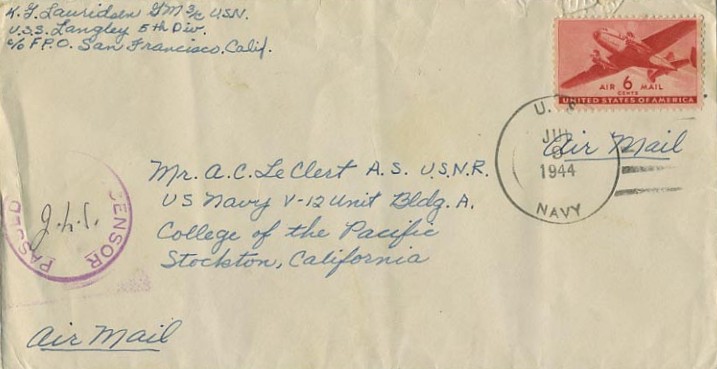 K. F. Lauridsen GM 3/c USN.
U.S.S. Langley 5th Div.
c/o F.P.O. San Francisco, Calif.
AIR 6 MAIL
CENTS
UNITED STATES OF AMERICA
U. S.
JUL
9
1944
NAVY
Air Mail
Mr. A.C. LeClert A.S. U.S.N.R.
US Navy V-12 Unit Bldg. A.
College of the Pacific
Stockton, California
PASSED
CENSOR
Air Mail